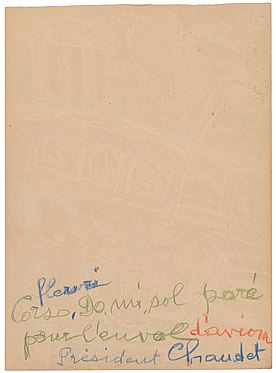 fleuri
Corso, Do, mi, sol paré
pour l'envol d'aviom
Président Chaudet